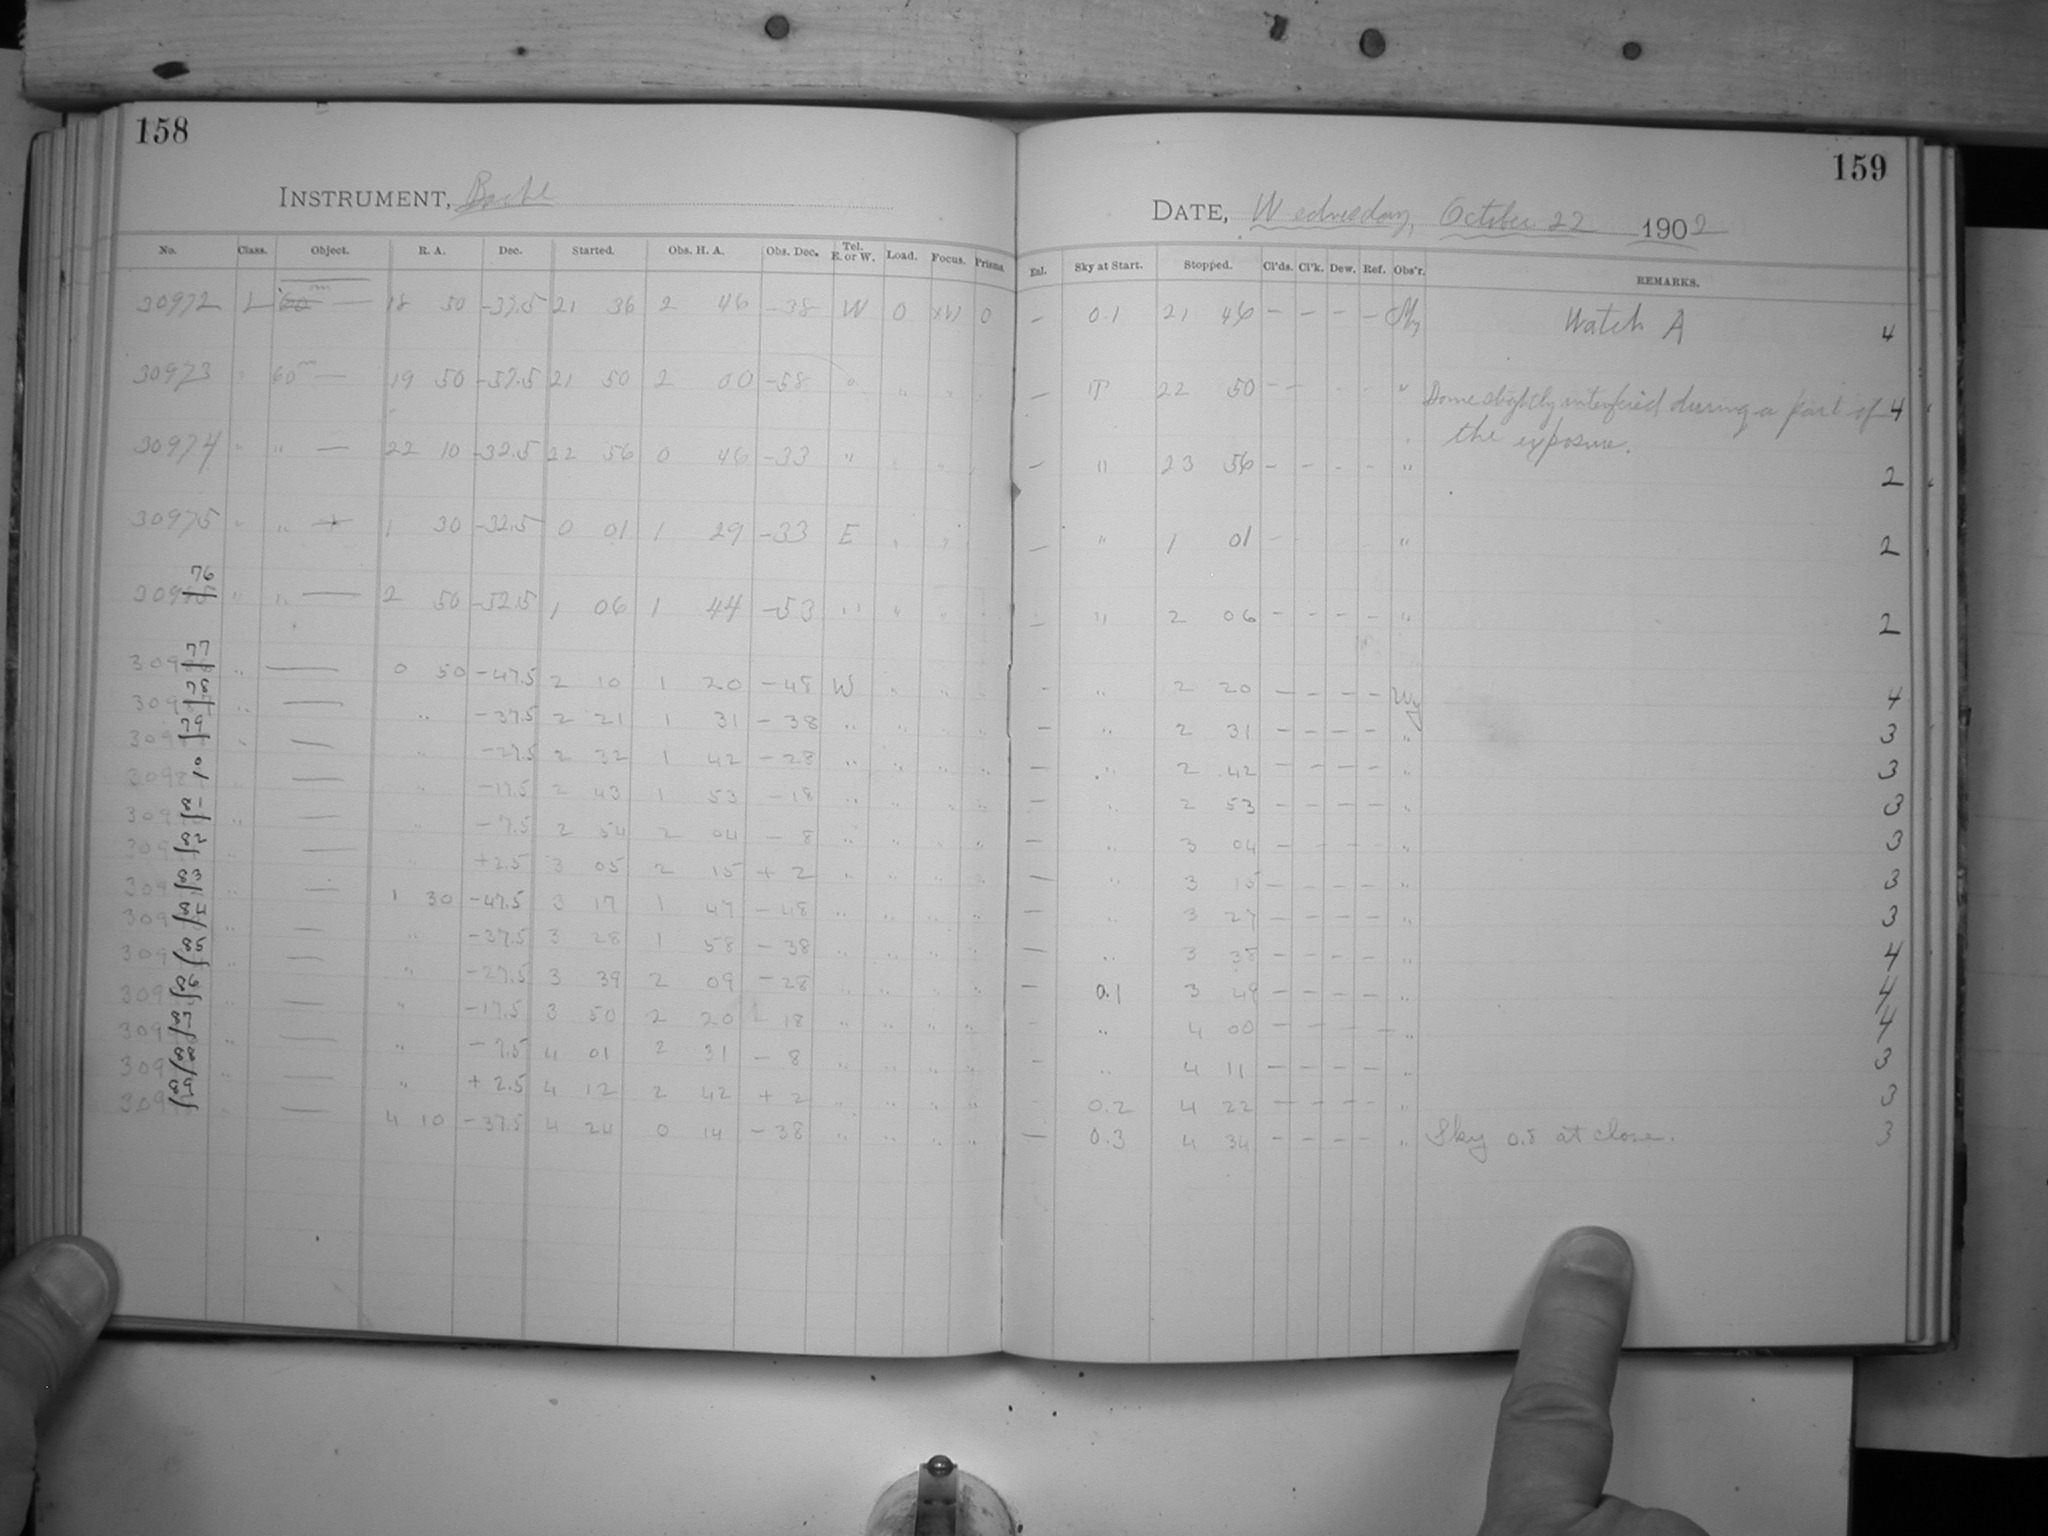 158
INSTRUMENT, Bache
No. Class. Object. R. A. Dec. Started. Obs. H. A. Obs. Dec. Tel. E. or W. Load. Focus. Prisms.
30972 L 60 m — 18 50 -37.5 21 36 2 46 -38 W 0 0
30973 " 60 m — 19 50 -57.5 21 50 2 00 -58 " " " "
30974 " " — 22 10 -32.5 22 56 0 46 -33 " " "
30975 " " — 1 30 -32.5 0 01 1 29 -33 E " "
76
309 " " — 2 50 -52.5 1 06 1 44 -53 " " " "
77
309 " — 0 50 -47.5 2 10 1 20 -48 W " " "
78
309 " — " -37.5 2 21 1 31 -38 " " " "
79
309 " — " -27.5 2 32 1 42 -28 " " " "
309 — " -17.5 2 43 1 53 -18 " " "
81
309 " — " -7.5 2 54 2 04 -8 " " " "
82
309 " — " +2.5 3 05 2 15 +2 " " " "
83
309 " — 1 30 -47.5 3 17 1 47 -48 " " " "
84
309 " — " -37.5 3 28 1 58 -38 " " " "
85
309 " — " -27.5 3 39 2 09 -28 " " " "
86
309 " — " -17.5 3 50 2 20 -18 " " " "
87
309 " — " -7.5 4 01 2 31 -8 " " " "
88
309 " — " +2.5 4 12 2 42 +2 " " " "
89
309 " — 4 10 -37.5 4 24 0 14 -38 " " " "
159
DATE, Wednesday, October 22 1902
Enl. Sky at Start. Stopped. Cl'ds. Cl'k. Dew. Ref. Obs'r. REMARKS.
— 0.1 21 46 — — — — Watch A 4
— " 22 50 — — — — " Dome slightly interfered during a part of 4
the exposure.
— " 23 56 — — — — " 2
— " 1 01 — — — — " 2
— " 2 06 — — — — " 2
— " 2 20 — — — — Wy 4
— " 2 31 — — — — " 3
— " 2 42 — — — — " 3
— " 2 53 — — — — " 3
— " 3 04 — — — — " 3
— " 3 15 — — — — " 3
— " 3 27 — — — — " 3
— " 3 38 — — — — " 4
— 0.1 3 49 — — — — " 4
— " 4 00 — — — — " 4
— " 4 11 — — — — " 3
— 0.2 4 22 — — — — " 3
— 0.3 4 34 — — — — " Sky 0.5 at close. 3